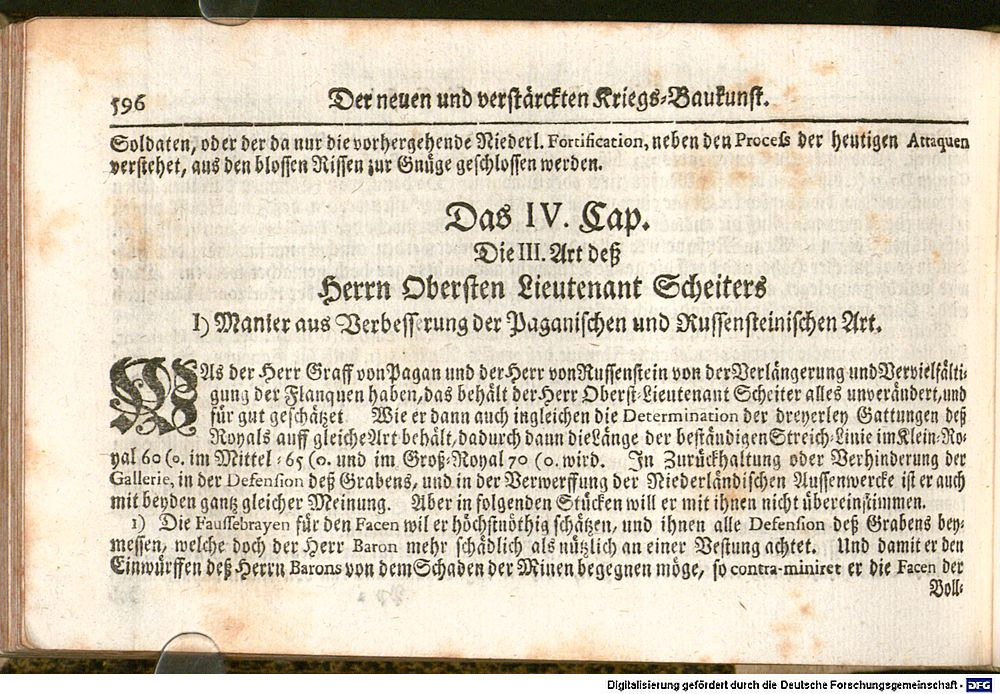 596 Der neuen und verstärckten Kriegs-Baukunst.
Soldaten, oder der da nur die vorhergehende Niederl. Fortification, neben den Process der heutigen Attaquen
verstehet, aus den blossen Rissen zur Gnüge geschlossen werden.
Das IV. Cap.
Die III. Art deß
Herrn Obersten Lieutenant Scheiters
I) Manier aus Verbesserung der Paganischen und Russensteinischen Art.
WAs der Herr Graff von Pagan und der Herr von Russenstein von der Verlängerung und Vervielfälti-
gung der Flanquen haben, das behält der Herr Oberst-Lieutenant Scheiter alles unverändert, und
für gut geschätzet Wie er dann auch ingleichen die Determination der dreyerley Gattungen deß
Royals auff gleiche Art behält, dadurch dann die Länge der beständigen Streich-Linie im Klein-Ro-
yal 60 (0. im Mittel-65 (0. und im Groß-Royal 70 (0. wird. In Zurückhaltung oder Verhinderung der
Gallerie, in der Defension deß Grabens, und in der Verwerffung der Niederländischen Aussenwercke ist er auch
mit beyden gantz gleicher Meinung. Aber in folgenden Stücken will er mit ihnen nicht übereinstimmen.
1) Die Faussebrayen für den Facen wil er höchstnöthig schätzen, und ihnen alle Defension deß Grabens bey-
messen, welche doch der Herr Baron mehr schädlich als nützlich an einer Vestung achtet. Und damit er den
Einwürffen deß Herrn Barons von dem Schaden der Minen begegnen möge, so contra-miniret er die Facen der
Voll-
Digitalisierung gefördert durch die Deutsche Forschungsgemeinschaft - DFG